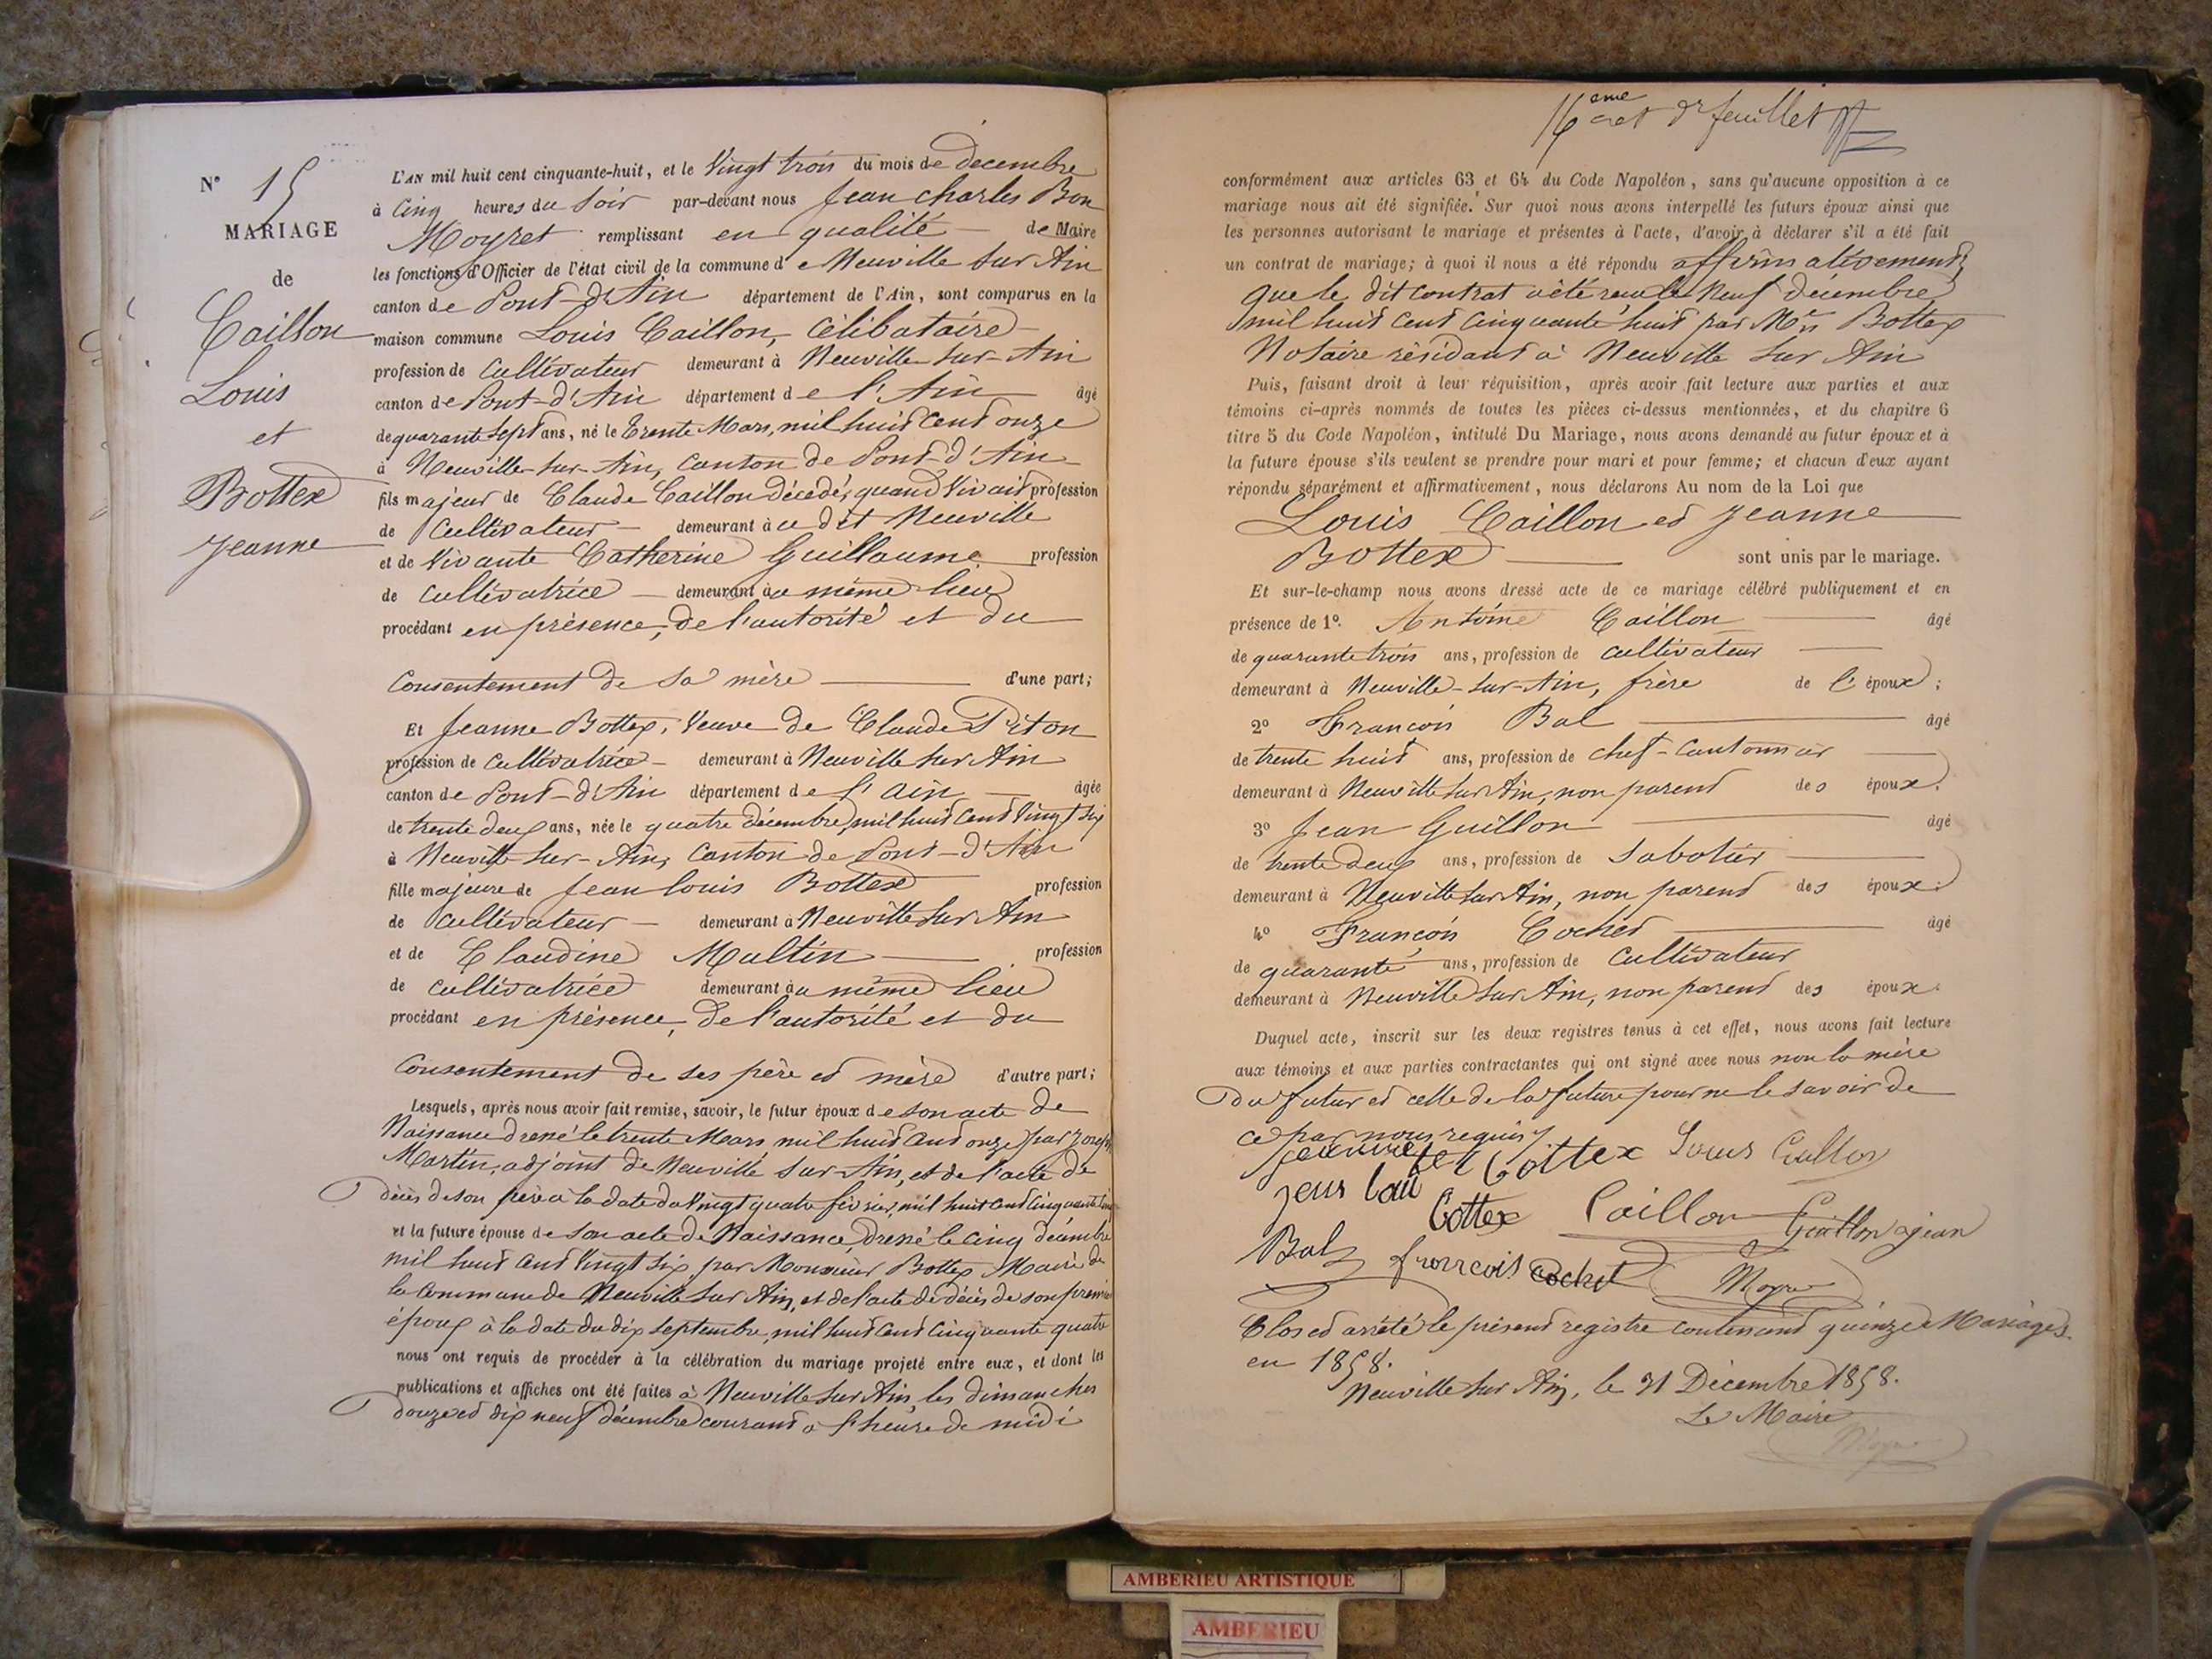 N° 15
MARIAGE
de
Caillon
Louis
et
Bottex
Jeanne
L'AN mil huit cent cinquante-huit, et le Vingt trois du mois de décembre
à Cinq heures du Soir par-devant nous Jean Charles Bon
Moyret remplissant en qualité de Maire
les fonctions d'Officier de l'état civil de la commune de Neuville sur Ain
canton de Pont-d'Ain département de l'Ain, sont comparus en la
maison commune Louis Caillon, Célibataire
profession de Cultivateur demeurant à Neuville-sur-Ain
canton de Pont-d'Ain département de l'Ain âgé
de quarante Sept ans, né le Trente Mars, mil huit Cent onze
à Neuville-sur-Ain, Canton de Pont-d'Ain
fils majeur de Claude Caillon décédé, quand Vivait profession
de Cultivateur demeurant à ce dit Neuville
et de Vivante Catherine Guillaume profession
de Cultivatrice demeurant au même lieu
procédant en présence, de l'autorité et du
Consentement de sa mère d'une part;
Et Jeanne Bottex, Veuve de Claude Piton
profession de Cultivatrice demeurant à Neuville sur Ain
canton de Pont-d'Ain département de l'Ain âgée
de trente deux ans, née le quatre décembre mil huit Cent Vingt Six
à Neuville-sur-Ain, Canton de Pont-d'Ain
fille majeure de Jean Louis Bottex profession
de Cultivateur demeurant à Neuville sur Ain
et de Claudine Multin profession
de Cultivatrice demeurant au même lieu
procédant en présence, de l'autorité et du
Consentement de ses père et mère d'autre part;
Lesquels, après nous avoir fait remise, savoir, le futur époux de son acte de
Naissance dressé le trente Mars mil huit Cent onze par Joseph
Martin, adjoint de Neuville sur Ain, et de l'acte de
décès de son père à la date du Vingt quatre février, mil huit Cent Cinquante
et la future épouse de son acte de Naissance, dressé le Cinq décembre
mil huit Cent Vingt Six, par Monsieur Bottex Maire de
la Commune de Neuville sur Ain, et de l'acte de décès de son premier
époux à la date du dix Septembre, mil huit Cent Cinquante quatre
nous ont requis de procéder à la célébration du mariage projeté entre eux, et dont les
publications et affiches ont été faites à Neuville sur Ain, les dimanches
douze et dix neuf décembre courant à l'heure de midi
16ème et dr feuillet
conformément aux articles 63 et 64 du Code Napoléon, sans qu'aucune opposition à ce
mariage nous ait été signifiée. Sur quoi nous avons interpellé les futurs époux ainsi que
les personnes autorisant le mariage et présentes à l'acte, d'avoir à déclarer s'il a été fait
un contrat de mariage; à quoi il nous a été répondu affirmativement,
que le dit contrat a été reçu le Neuf décembre
mil huit Cent Cinquante huit par Me Bottex
Notaire résidant à Neuville sur Ain
Puis, faisant droit à leur réquisition, après avoir fait lecture aux parties et aux
témoins ci-après nommés de toutes les pièces ci-dessus mentionnées, et du chapitre 6
titre 5 du Code Napoléon, intitulé Du Mariage, nous avons demandé au futur époux et à
la future épouse s'ils veulent se prendre pour mari et pour femme; et chacun d'eux ayant
répondu séparément et affirmativement, nous déclarons Au nom de la Loi que
Louis Caillon et Jeanne
Bottex sont unis par le mariage.
Et sur-le-champ nous avons dressé acte de ce mariage célébré publiquement et en
présence de 1° Antoine Caillon âgé
de quarante trois ans, profession de Cultivateur
demeurant à Neuville-sur-Ain, frère de l'époux;
2° François Bal âgé
de trente huit ans, profession de Chef-Cantonnier
demeurant à Neuville sur Ain, non parent des époux.
3° Jean Guillon âgé
de trente deux ans, profession de Sabotier
demeurant à Neuville sur Ain, non parent des époux.
4° François Cochet âgé
de quarante ans, profession de Cultivateur
demeurant à Neuville sur Ain, non parent des époux.
Duquel acte, inscrit sur les deux registres tenus à cet effet, nous avons fait lecture
aux témoins et aux parties contractantes qui ont signé avec nous non la mère
du futur et celle de la future pour ne le savoir de
ce par nous requis
Bottex Louis Caillon
Bottex Caillon Guillon jean
Bal francois cochet Moyret
Clos et arrêté le présent registre contenant quinze Mariages
en 1858.
Neuville sur Ain, le 31 Décembre 1858.
Le Maire
Moyret
AMBERIEU ARTISTIQUE
AMBERIEU